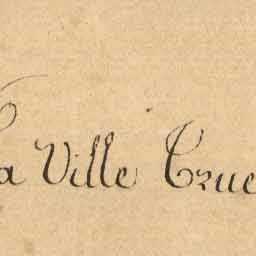 La Ville True